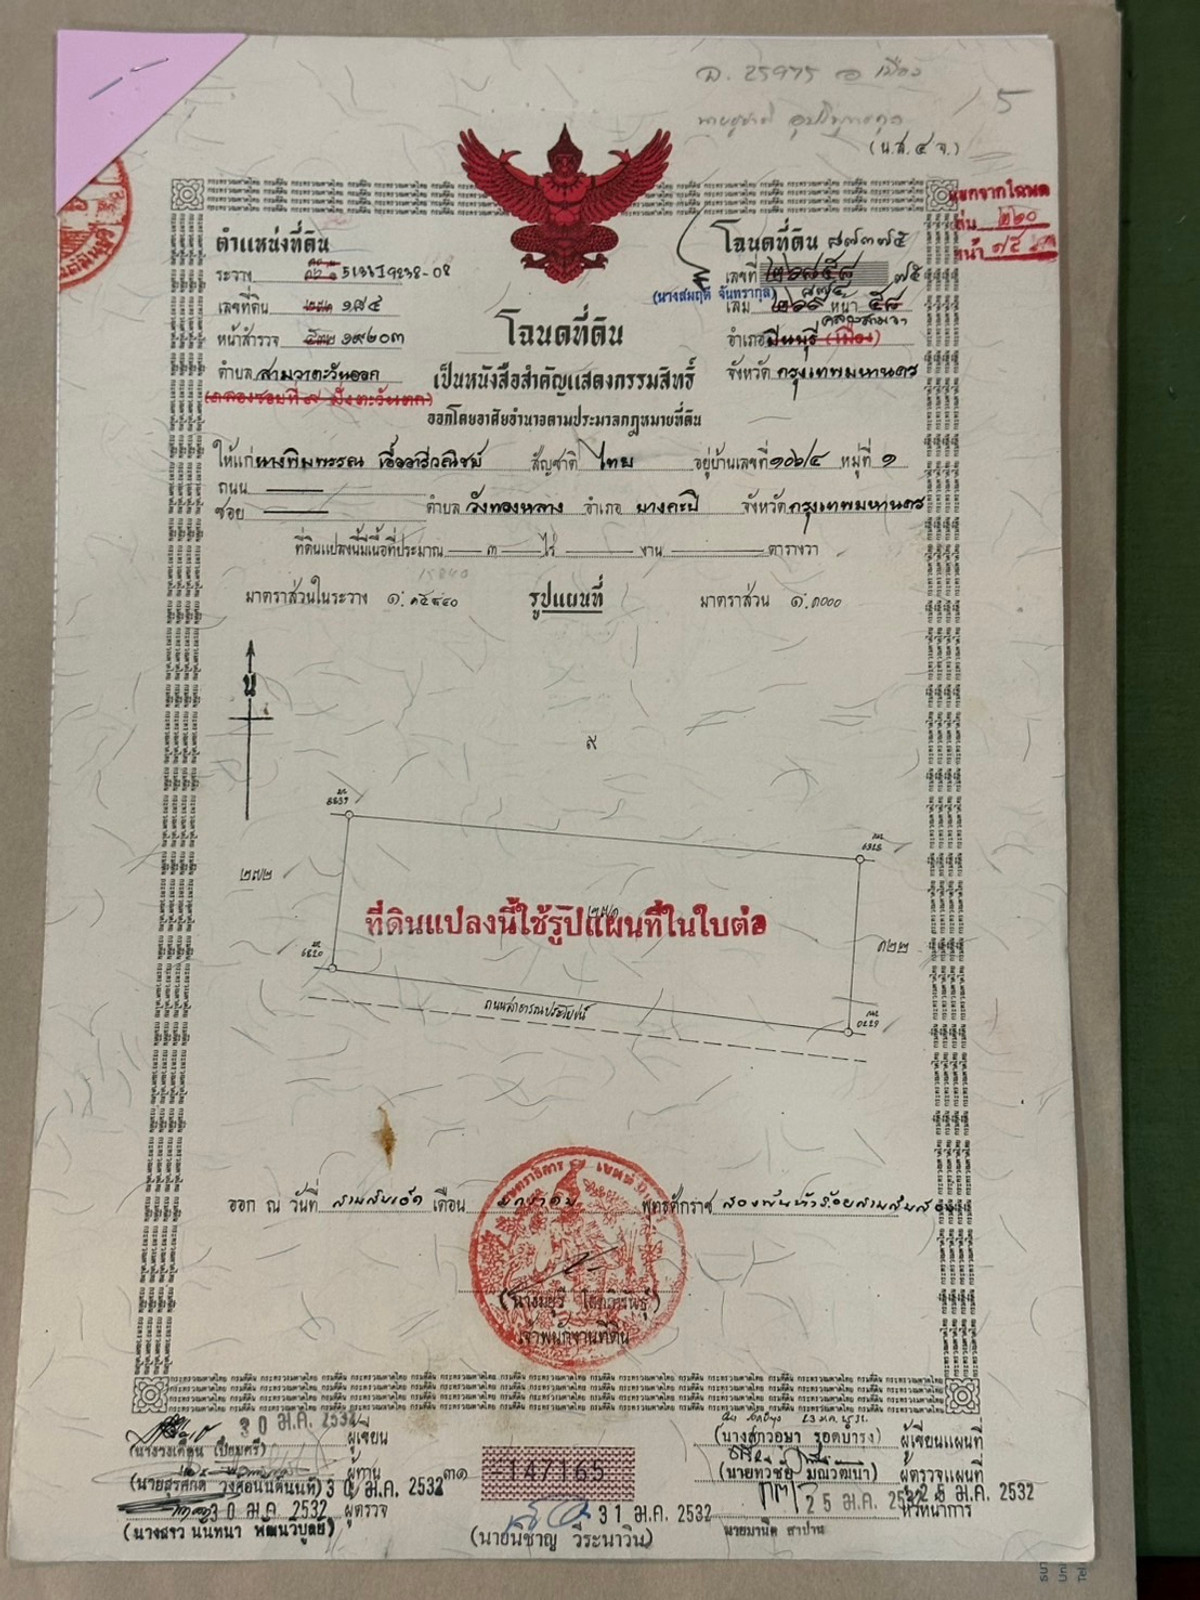 ฉ. 25975 อ เมือง
15
(น.ส.๔ จ.)
แยกจากโฉนด
เล่ม ๒๒๐
หน้า ๑๕
ตำแหน่งที่ดิน
ระวาง 5136 I 9238-08
เลขที่ดิน ๑๘๕
หน้าสำรวจ ๑๙๒๐๓
ตำบล สามวาตะวันออก
(คลองซอยที่ ๙ ฝั่งตะวันตก)
โฉนดที่ดิน ๘๗๓๗๕
เลขที่ ๗๕
(นางสมฤดี จันทรากุล)
เล่ม ๘๗๔ หน้า
คลองสามวา
อำเภอ มีนบุรี (เมือง)
จังหวัด กรุงเทพมหานคร
โฉนดที่ดิน
เป็นหนังสือสำคัญแสดงกรรมสิทธิ์
ออกโดยอาศัยอำนาจตามประมวลกฎหมายที่ดิน
ให้แก่ นางพิมพรรณ เอื้ออารีวณิชย์ สัญชาติ ไทย อยู่บ้านเลขที่ ๑๐๖/๔ หมู่ที่ ๑
ถนน
ซอย ตำบล วังทองหลาง อำเภอ บางกะปิ จังหวัด กรุงเทพมหานคร
ที่ดินแปลงนี้มีเนื้อที่ประมาณ ๓ ไร่ งาน ตารางวา
15840
มาตราส่วนในระวาง ๑:๑๕๘๔๐ รูปแผนที่ มาตราส่วน ๑:๑๐๐๐
น
๙
๒๗๒
๒๗๑
ที่ดินแปลงนี้ใช้รูปแผนที่ในใบต่อ
๓๒๒
ถนนสาธารณประโยชน์
ออก ณ วันที่ สามสิบเอ็ด เดือน มกราคม พุทธศักราช สองพันห้าร้อยสามสิบสอง
เจ้าพนักงานที่ดิน
30 ม.ค. 2532
(นางวงเดือน เปี่ยมศรี) ผู้เขียน
ผู้ทาน
(นายสุรศักดิ์ วงศ์อนันต์นนท์) 30 ม.ค. 2532
30 ม.ค. 2532 ผู้ตรวจ
(นางสาว นันทนา พัฒนวิบูลย์)
๓๑
147165
31 ม.ค. 2532
(นายนิชาญ วีระนาวิน)
23 ม.ค. 2532
(นางสาวอุษา รอดบำรุง) ผู้เขียนแผนที่
(นายทวีชัย มณีวัฒนา) ผู้ตรวจแผนที่
25 ม.ค. 2532 25 ม.ค. 2532
หัวหน้าการ
นายมานิต สาปาน